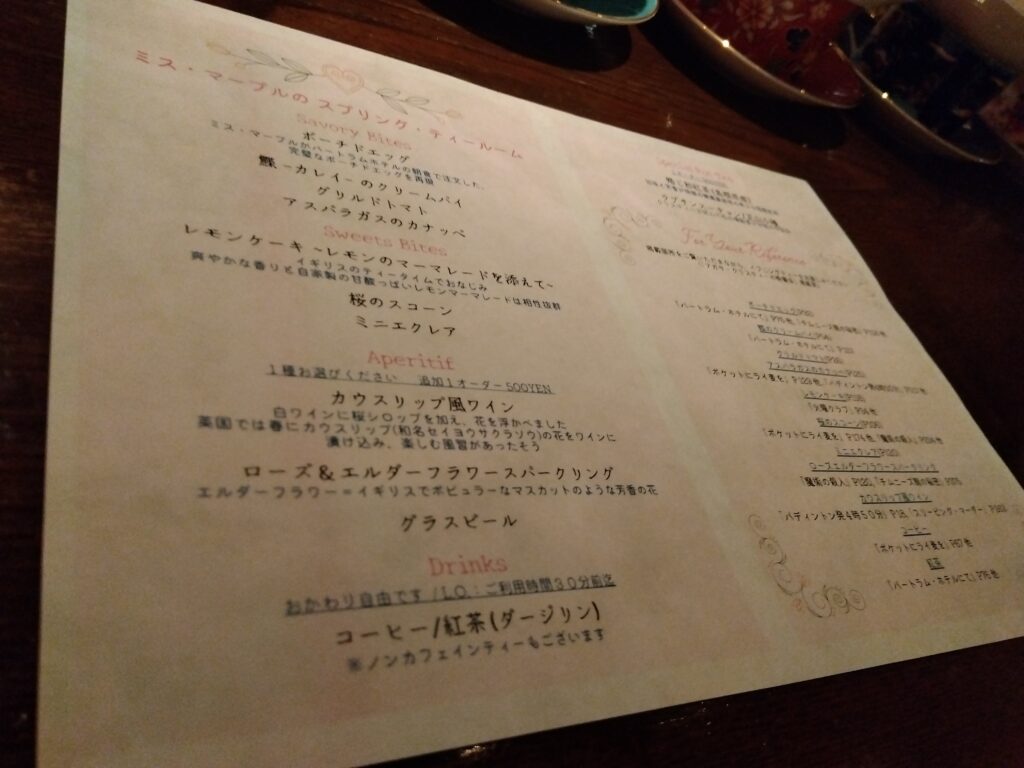 ミス・マープルの スプリング・ティールーム
Savory Bites
ポーチドエッグ
ミス・マープルがバートラムホテルの朝食で注文した、
完璧なポーチドエッグを再現
鰈 ーカレイー のクリームパイ
グリルドトマト
アスパラガスのカナッペ
Sweets Bites
レモンケーキ ~レモンのマーマレードを添えて~
イギリスのティータイムでおなじみ
爽やかな香りと自家製の甘酸っぱいレモンマーマレードは相性抜群
桜のスコーン
ミニエクレア
Aperitif
1種お選びください 追加1オーダー500YEN
カウスリップ風ワイン
白ワインに桜シロップを加え、花を浮かべました
英国では春にカウスリップ(和名セイヨウサクラソウ)の花をワインに
漬け込み、楽しむ風習があったそう
ローズ&エルダーフラワースパークリング
エルダーフラワー=イギリスでポピュラーなマスカットのような芳香の花
グラスビール
Drinks
おかわり自由です /LO:ご利用時間30分前迄
コーヒー/紅茶(ダージリン)
※ノンカフェインティーもございます
For Your Reference
「バートラム・ホテルにて」
アスパラガスのカナッペ
「ポケットにライ麦を」
レモンケーキ
「火曜クラブ」
桜のスコーン
「ポケットにライ麦を」
ミニエクレア
ローズエルダーフラワースパークリング
カウスリップ風ワイン
「パディントン発4時50分」
コーヒー
「ポケットにライ麦を」 P67 他
紅茶
「バートラム・ホテルにて」 P76 他